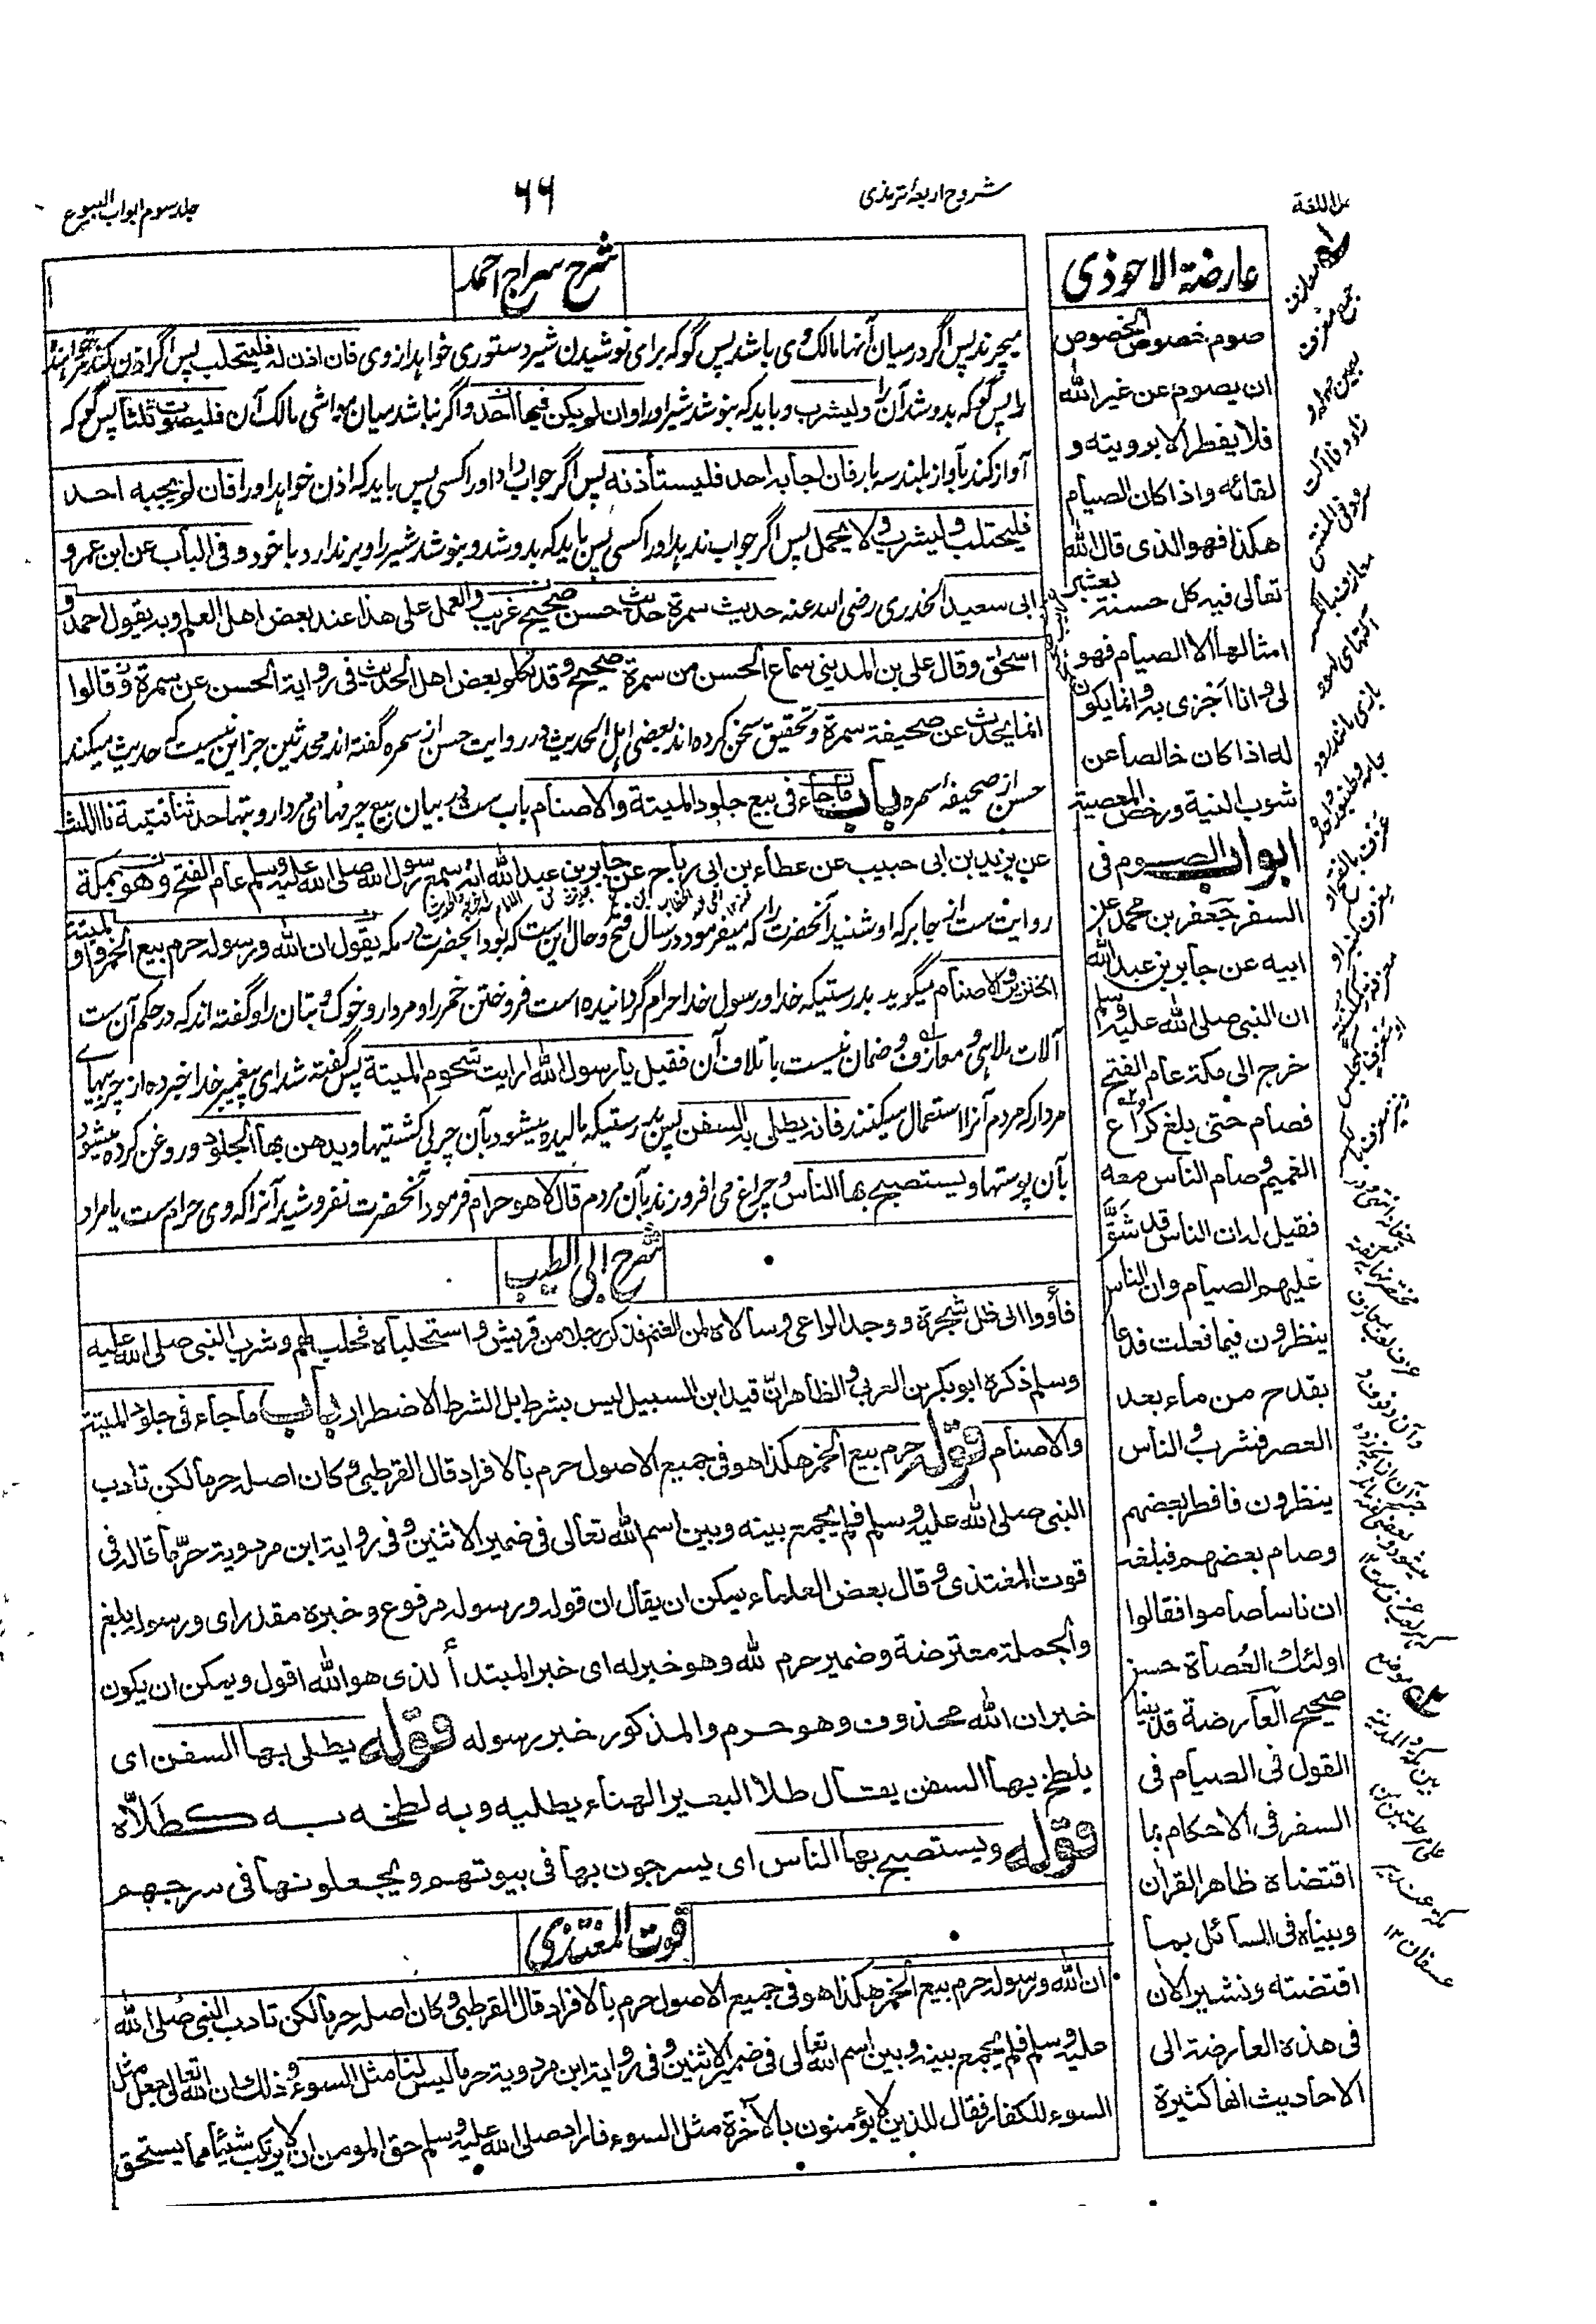 حل اللغة
شروح اربعهٔ ترمذی
۶۶
جلد سوم ابواب البیوع
عارضة الاحوذی
صوم خصوص الخصوص
ان یصوم عن غیر الله
فلا یفطر الا برویته و
لقائه واذا کان الصیام
هکذا فهو الذی قال الله
تعالی فیه کل حسنة بعشر
امثالها الا الصیام فهو
لی وانا اجزی به وانما یکون
له اذا کان خالصا عن
شوب النیة ورخص المعصیة
ابواب الصوم فی
السفر جعفر بن محمد عن
ابیه عن جابر بن عبد الله
ان النبی صلی الله علیه وسلم
خرج الی مکة عام الفتح
فصام حتی بلغ کراع
الغمیم وصام الناس معه
فقیل له ان الناس قد شَقَّ
علیهم الصیام وان الناس
ینظرون فیما فعلت فدعا
بقدح من ماء بعد
العصر فشرب والناس
ینظرون فافطر بعضهم
وصام بعضهم فبلغه
ان ناسا صاموا فقالوا
اولئك العُصاة حسن
صحیح العارضة قد بینا
القول فی الصیام فی
السفر فی الاحکام بما
اقتضاه ظاهر القرآن
وبیناه فی المسائل بما
اقتضته ونشیر الان
فی هذه العارضة الی
الاحادیث انها کثیرة
شرح سراج احمد
میچرند پس اگر درمیان آنها مالک وی باشد پس گو که برای نوشیدن شیر دستوری خواهد از وی فان اذن له فلیحتلب پس اگر اذن کند
را پس گو که بدوشد آن را ولیشرب و باید که بنوشد شیر او را وان لم یکن فیها احد واگر نباشد میان مواشی مالک آن فلیصوت ثلثا پس گو که
آواز کند بآواز بلند سه بار فان اجابه احد فلیستأذنه پس اگر جواب داد او را کسی پس باید که اذن خواهد او را فان لم یجبه احد
فلیحتلب ولیشرب ولا یحمل پس اگر جواب ندهد او را کسی پس باید که بدوشد و بنوشد شیر را و برندارد با خود و فی الباب عن ابن عمر و
ابی سعید الخدری رضی الله عنه حدیث سمرة حدیث حسن صحیح غریب والعمل علی هذا عند بعض اهل العلم وبه یقول احمد و
اسحٰق وقال علی بن المدینی سماع الحسن من سمرة صحیح وقد تکلم بعض اهل الحدیث فی روایة الحسن عن سمرة وقالوا
انما یحدث عن صحیفة سمرة وتحقیق سخن کرده اند بعضی اهل الحدیث در روایت حسن از سمره گفته اند محدثین جز این نیست که حدیث میکند
حسن از صحیفهٔ سمره باب ما جاء فی بیع جلود المیتة والاصنام باب ست در بیان بیع چرمهای مردار وبتها حدثنا قتیبة نا اللیث
عن یزید بن ابی حبیب عن عطاء بن ابی رباح عن جابر بن عبد الله انه سمع رسول الله صلی الله علیه وسلم عام الفتح وهو بمکة
روایت ست از جابر که او شنید آنحضرت را که میفرمود در سال فتح وحال این ست که بود آنحضرت در مکه یقول ان الله ورسوله حرم بیع الخمر والمیتة و
الخنزیر والاصنام میگوید بدرستیکه خدا ورسول خدا حرام گردانیده است فروختن خمر را و مردار و خوک و بتان را و گفته اند که در حکم آن ست
آلات ملاهی و معازف و ضمان نیست باتلاف آن فقیل یا رسول الله ارایت شحوم المیتة پس گفته شد ای پیغمبر خدا خبر ده از چربیهای
مردار که مردم آنرا استعمال میکنند فانه یطلی به السفن پس بدرستیکه مالیده میشود بآن چربی کشتیها ویدهن بها الجلود و روغن کرده میشود
بآن پوستها ویستصبح بها الناس و چراغ می افروزند بآن مردم قال لا هو حرام فرمود آنحضرت نفروشید آنرا که وی حرام ست یا مراد
شرح ابی الطیب
فأووا الی ظل شجرة ووجد الراعی وسالاه لمن الغنم فذکر رجلا من قریش واستحلباه فحلب لهم وشرب النبی صلی الله علیه
وسلم ذکره ابو بکر بن العربی والظاهر انّ قید ابن السبیل لیس بشرط بل الشرط الاضطرار باب ما جاء فی جلود المیتة
والاصنام قوله حرم بیع الخمر هکذا هو فی جمیع الاصول حرم بالافراد قال القرطبی وکان اصله حرما لکن تادب
النبی صلی الله علیه وسلم فلم یجمع بینه وبین اسم الله تعالی فی ضمیر الاثنین وفی روایة ابن مردویة حرّما قاله فی
قوت المغتذی وقال بعض العلماء یمکن ان یقال ان قوله ورسوله مرفوع وخبره مقدر ای ورسوله یبلغ
والجملة معترضة وضمیر حرم لله وهو خبر له ای خبر المبتدأ الذی هو الله اقول ویمکن ان یکون
خبر ان الله محذوف وهو حرم والمذکور خبر رسوله قوله یطلی بها السفن ای
یلطخ بها السفن یقال طلا البعیر الهناء یطلیه وبه لطخه به کطَلَّاه
قوله ویستصبح بها الناس ای یسرجون بها فی بیوتهم ویجعلونها فی سرجهم
قوت المغتذی
ان الله ورسوله حرم بیع الخمر هکذا هو فی جمیع الاصول حرم بالافراد قال القرطبی وکان اصله حرما لکن تادب النبی صلی الله
علیه وسلم فلم یجمع بینه وبین اسم الله تعالی فی ضمیر الاثنین وفی روایة ابن مردویة حرما لیس لنا مثل السوء وذلك ان الله تعالی جعل مثل
السوء للکفار فقال للذین لا یؤمنون بالآخرة مثل السوء فاراد صلی الله علیه وسلم حق المومن ان لا یرتکب شیئا مما یستحق